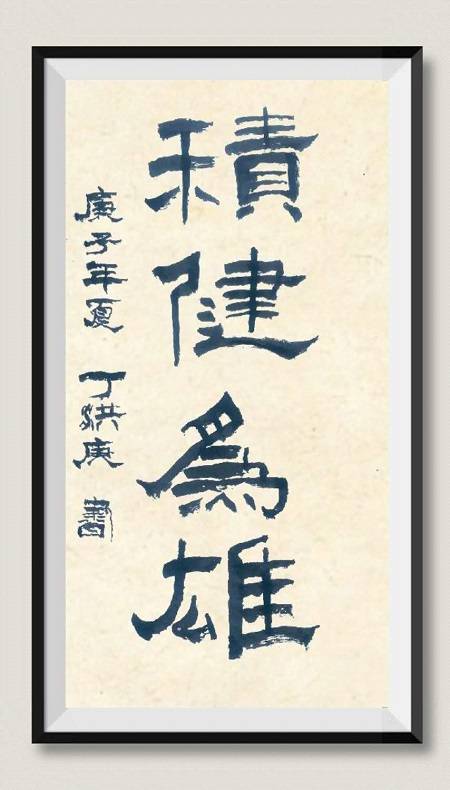 積健為雄
庚子年夏 丁洪庚 書